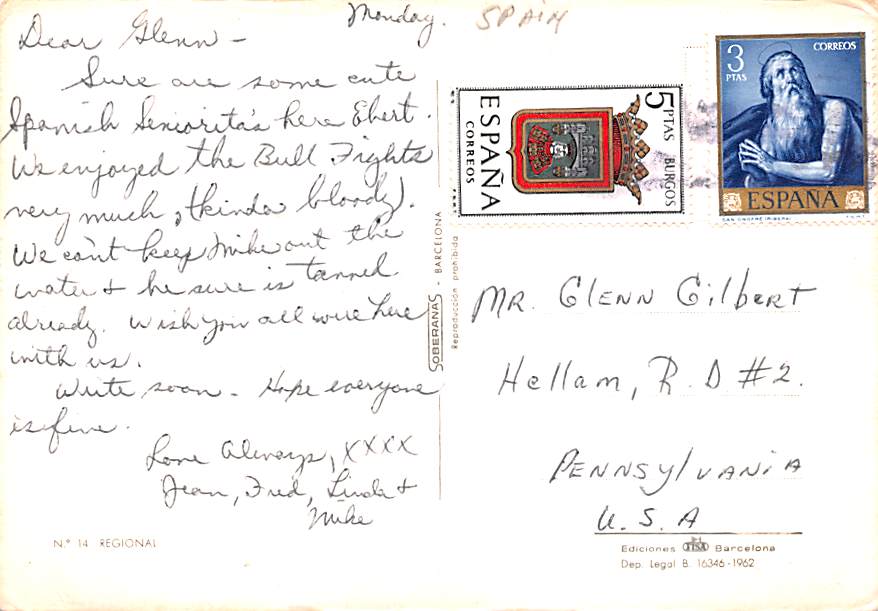 Monday. SPAIN
Dear Glenn -
Sure are some cute
SpanishSeniorita's here Ebert.
We enjoyed the Bull Fights
very much, (kinda bloody).
We can't keep Mike out the
water & he sure is tanned
already. Wish you all were here
with us.
Write soon - Hope everyone
is fine.
Love Always, XXXX
Jean, Fred, Linda &
Mike
Nº 14 REGIONAL
SOBERANAS - BARCELONA
Reproducción prohibida
5 PTAS BURGOS
ESPAÑA
CORREOS
F.N.M.T.
3 PTAS
CORREOS
ESPAÑA
SAN ONOFRE (RIBERA) F.N.M.T.
MR. GLENN Gilbert
Hellam, R.D #2.
PENNSylVANiA
U.S.A
Ediciones FISA Barcelona
Dep. Legal B. 16346-1962